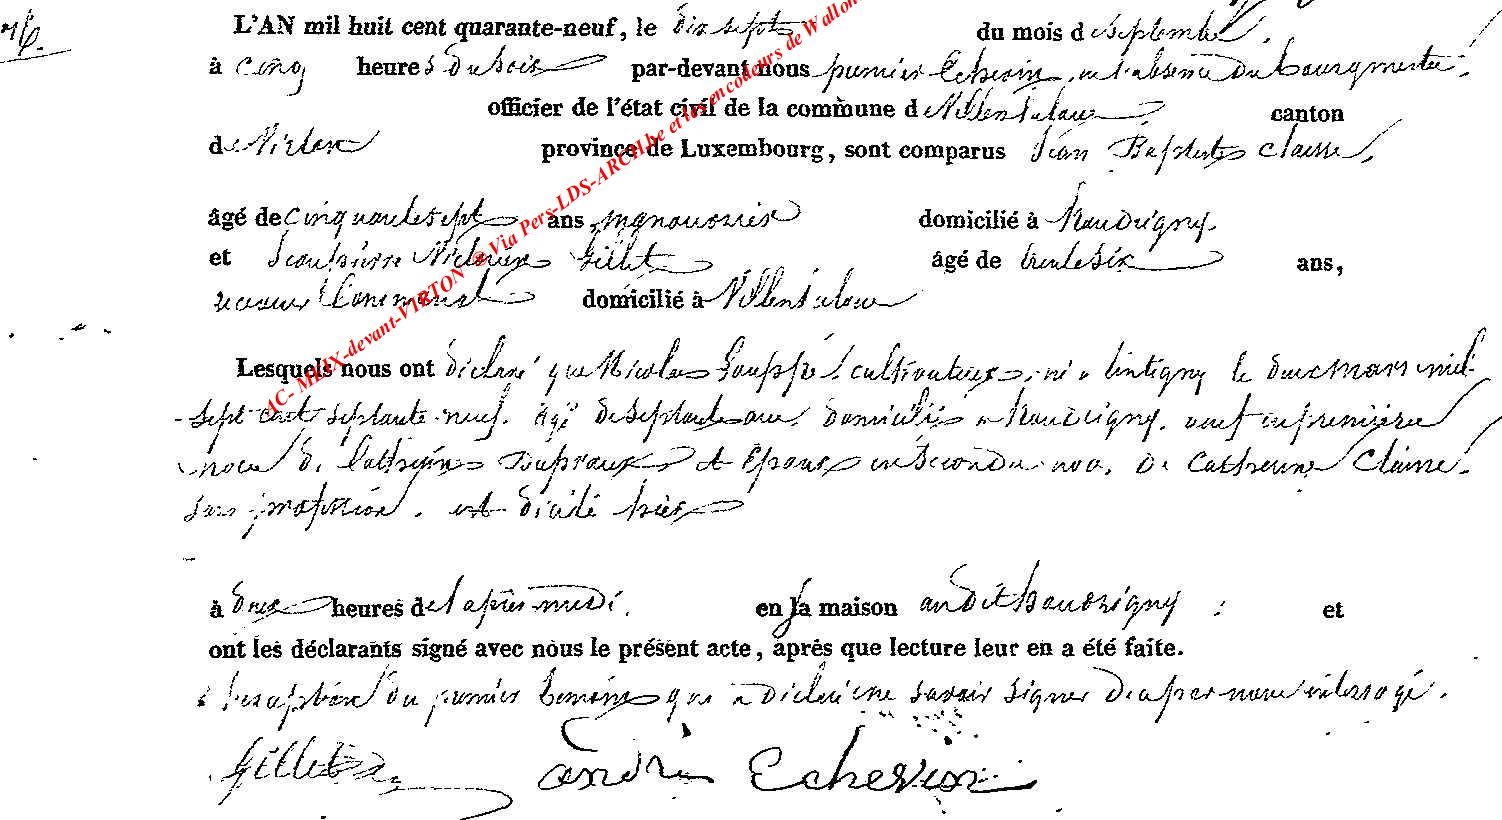 76.
L'AN mil huit cent quarante-neuf, le dix sept du mois de Septembre.
à cinq heures du soir par-devant nous premier Echevin, en l'absence du bourgmestre,
officier de l'état civil de la commune de Villers-sur-Semois canton
de Virton province de Luxembourg, sont comparus Jean Baptiste Claisse,
âgé de cinquante sept ans, manouvrier domicilié à Houdrigny.
et Jean pierre Victorien Gillet âgé de trente six ans,
receveur Communal domicilié à
Lesquels nous ont déclaré que Nicolas Goupphé, cultivateur, né à tintigny le deux mars mil
sept cent septante-neuf, âgé de septante ans domicilié à Houdrigny, veuf en première
noce de Catherine et Epoux en Seconde noce de Catherine Claisse,
sans profession, est décédé hier
à deux heures de l'après-midi, en sa maison audit houdrigny : et
ont les déclarants signé avec nous le présent acte, après que lecture leur en a été faite.
à l'exception du premier témoin qui a déclaré ne savoir signer de ce par nous interrogé.
Gillet andré Echevin
AC- MLIX-devant-VIRTON @Via Pers-LDS-ARCH.be et les encodeurs de Wallon